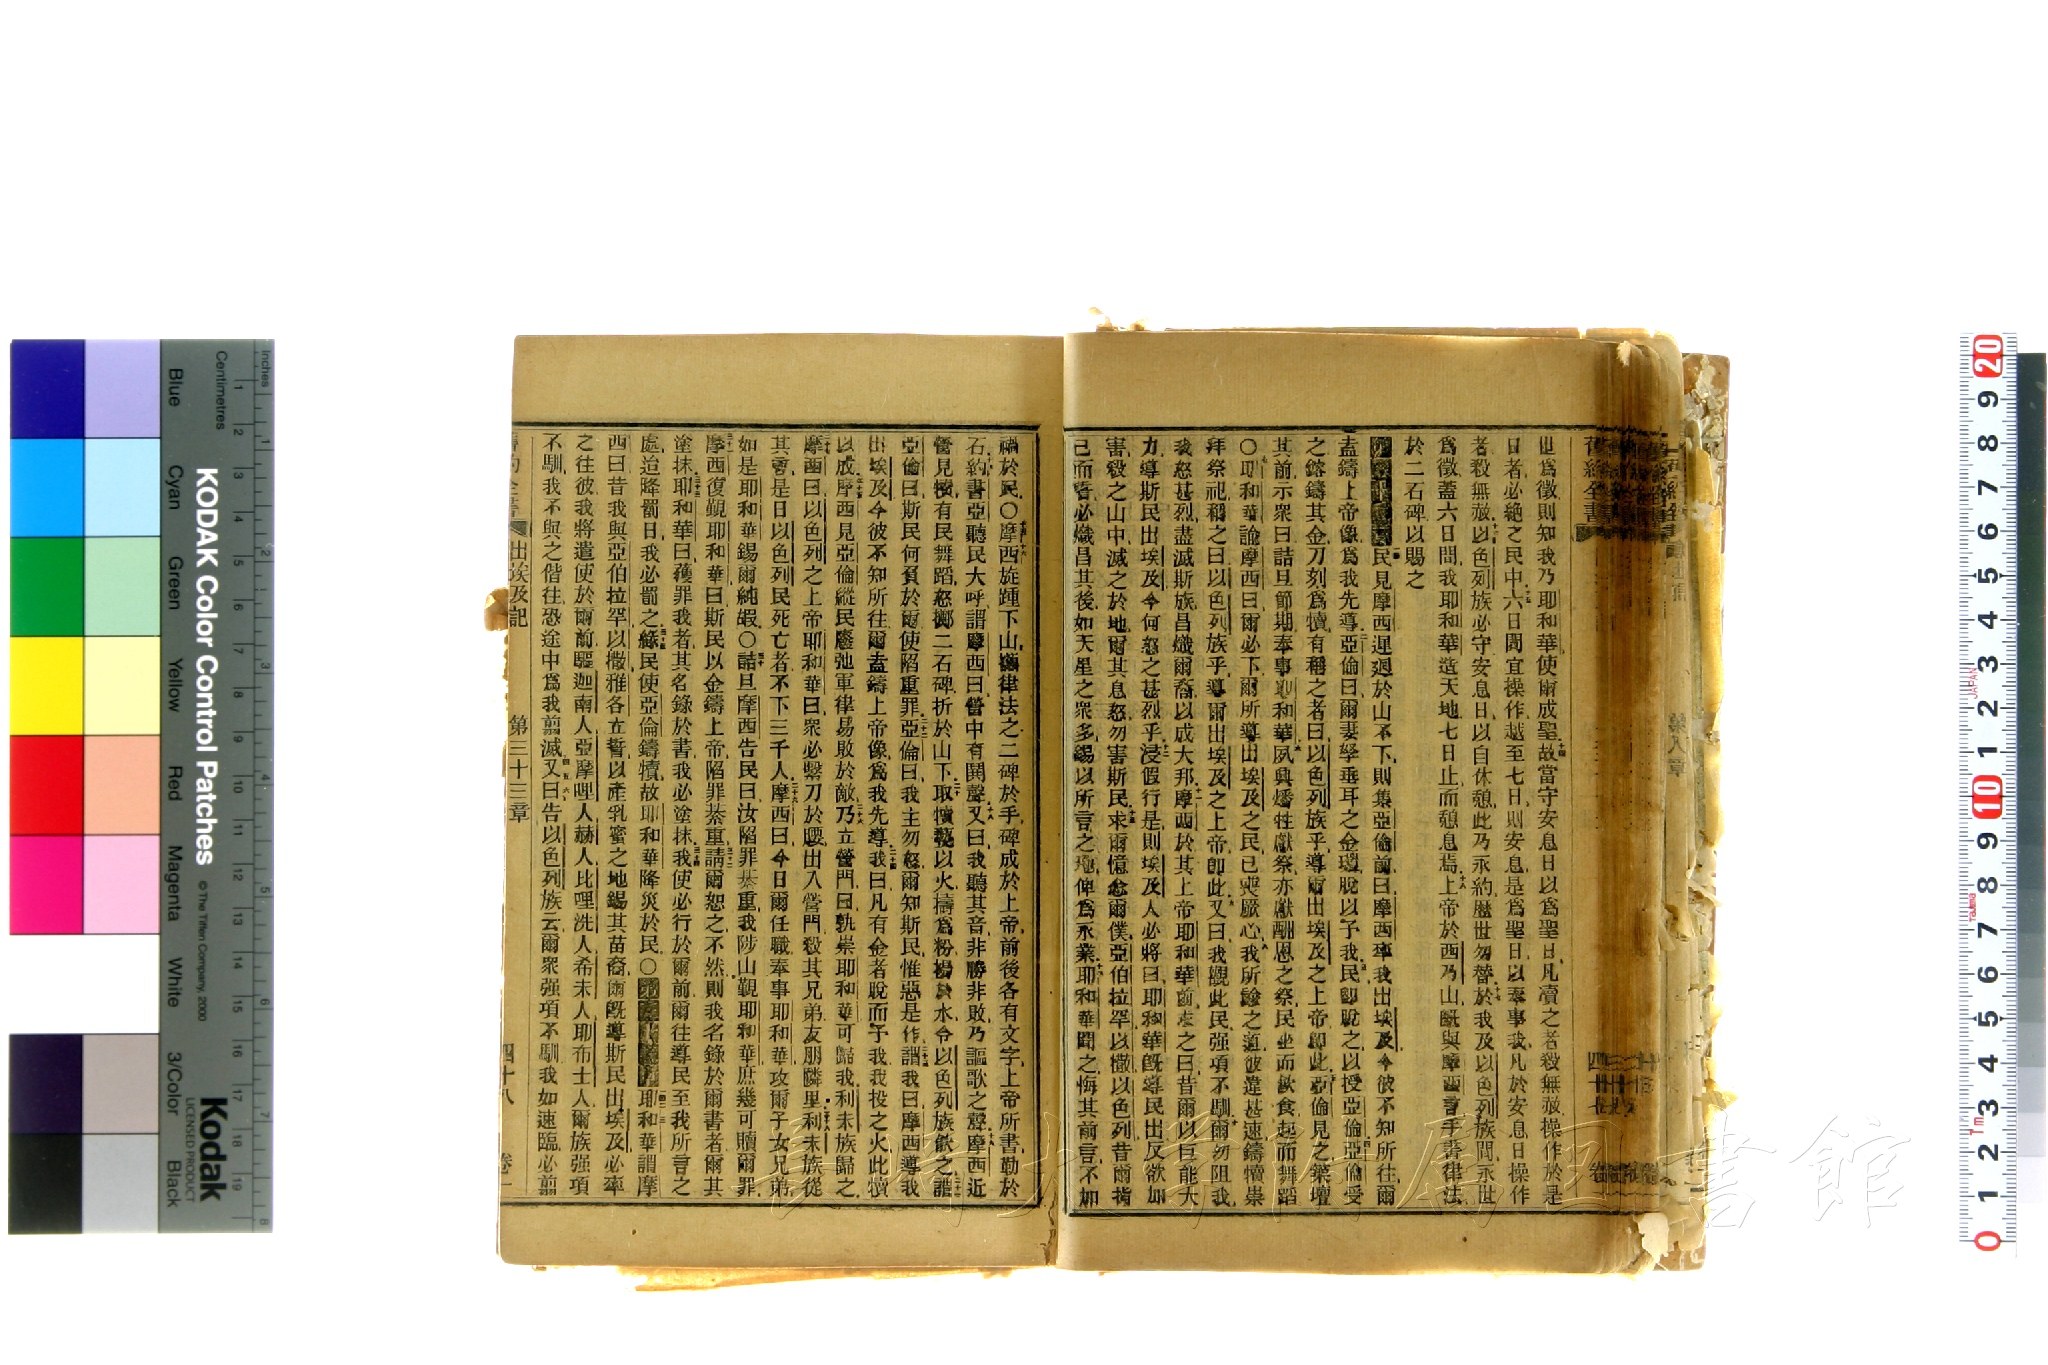 也爲徵則知我乃耶和華使爾成聖故當守安息日以爲聖日凡瀆之者殺無赦操作於是
日者必絕之民中六日間宜操作越至七日則安息是爲聖日以奉事我凡於安息日操作
者殺無赦以色列族必守安息日以自休憩此乃永約歷世勿替於我及以色列族間永世
爲徵蓋六日間我耶和華造天地七日止而憩息焉上帝於西乃山旣與摩西言手書律法
於二石碑以賜之
民見摩西遲廻於山不下則集亞倫前曰摩西率我出埃及今彼不知所往爾
盍鑄上帝像爲我先導亞倫曰爾妻孥垂耳之金環脫以予我民卽脫之以授亞倫亞倫受
之鎔鑄其金刀刻爲犢有稱之者曰以色列族乎導爾出埃及之上帝卽此亞倫見之築壇
其前示衆曰詰旦節期奉事耶和華夙興燔牲獻祭亦獻酬恩之祭民坐而飲食起而舞蹈
○耶和華諭摩西曰爾必下爾所導出埃及之民已喪厥心我所諭之道彼違甚速鑄犢崇
拜祭祀稱之曰以色列族乎導爾出埃及之上帝卽此又曰我觀此民强項不馴爾勿阻我
我怒甚烈盡滅斯族昌熾爾裔以成大邦摩西於其上帝耶和華前求之曰昔爾以巨能大
力導斯民出埃及今何怒之甚烈乎浸假行是則埃及人必將曰耶和華旣導民出反欲加
害殺之山中滅之於地爾其息怒勿害斯民求爾憶念爾僕亞伯拉罕以撒以色列昔爾指
己而誓必熾昌其後如天星之衆多錫以所言之地俾爲永業耶和華聞之悔其前言不加
禍於民○摩西旋踵下山攜律法之二碑於手碑成於上帝前後各有文字上帝所書勒於
石約書亞聽民大呼謂摩西曰營中有鬭聲又曰我聽其音非勝非敗乃謳歌之聲摩西近
營見犢有民舞蹈怒擲二石碑折於山下取犢爇以火擣爲粉播於水令以色列族飲之謂
亞倫曰斯民何負於爾使陷重罪亞倫曰我主勿怒爾知斯民惟惡是作謂我曰摩西導我
出埃及今彼不知所往爾盍鑄上帝像爲我先導我曰凡有金者脫而予我我投之火此犢
以成摩西見亞倫縱民廢弛軍律易敗於敵乃立營門曰孰崇耶和華可歸我利未族歸之
摩西曰以色列之上帝耶和華曰衆必繫刀於腰出入營門殺其兄弟友朋隣里利未族從
其言是日以色列民死亡者不下三千人摩西曰今日爾任職奉事耶和華攻爾子女兄弟
如是耶和華錫爾純嘏○詰旦摩西告民曰汝陷罪綦重我陟山覲耶和華庶幾可贖爾罪
摩西復覲耶和華曰斯民以金鑄上帝陷罪綦重請爾恕之不然則我名錄於爾書者爾其
塗抹耶和華曰獲罪我者其名錄於書我必塗抹我使必行於爾前爾往導民至我所言之
處迨降罰日我必罰之緣民使亞倫鑄犢故耶和華降災於民○第三十三章耶和華謂摩
西曰昔我與亞伯拉罕以撒雅各立誓以產乳蜜之地錫其苗裔爾旣導斯民出埃及必率
之往彼我將遣使於爾前驅迦南人亞摩哩人赫人比哩洗人希未人耶布士人爾族强項
不馴我不與之偕往恐途中爲我翦滅又曰告以色列族云爾衆强項不馴我如速臨必翦
舊約全書 出埃及記 第三十三章 四十八 卷二